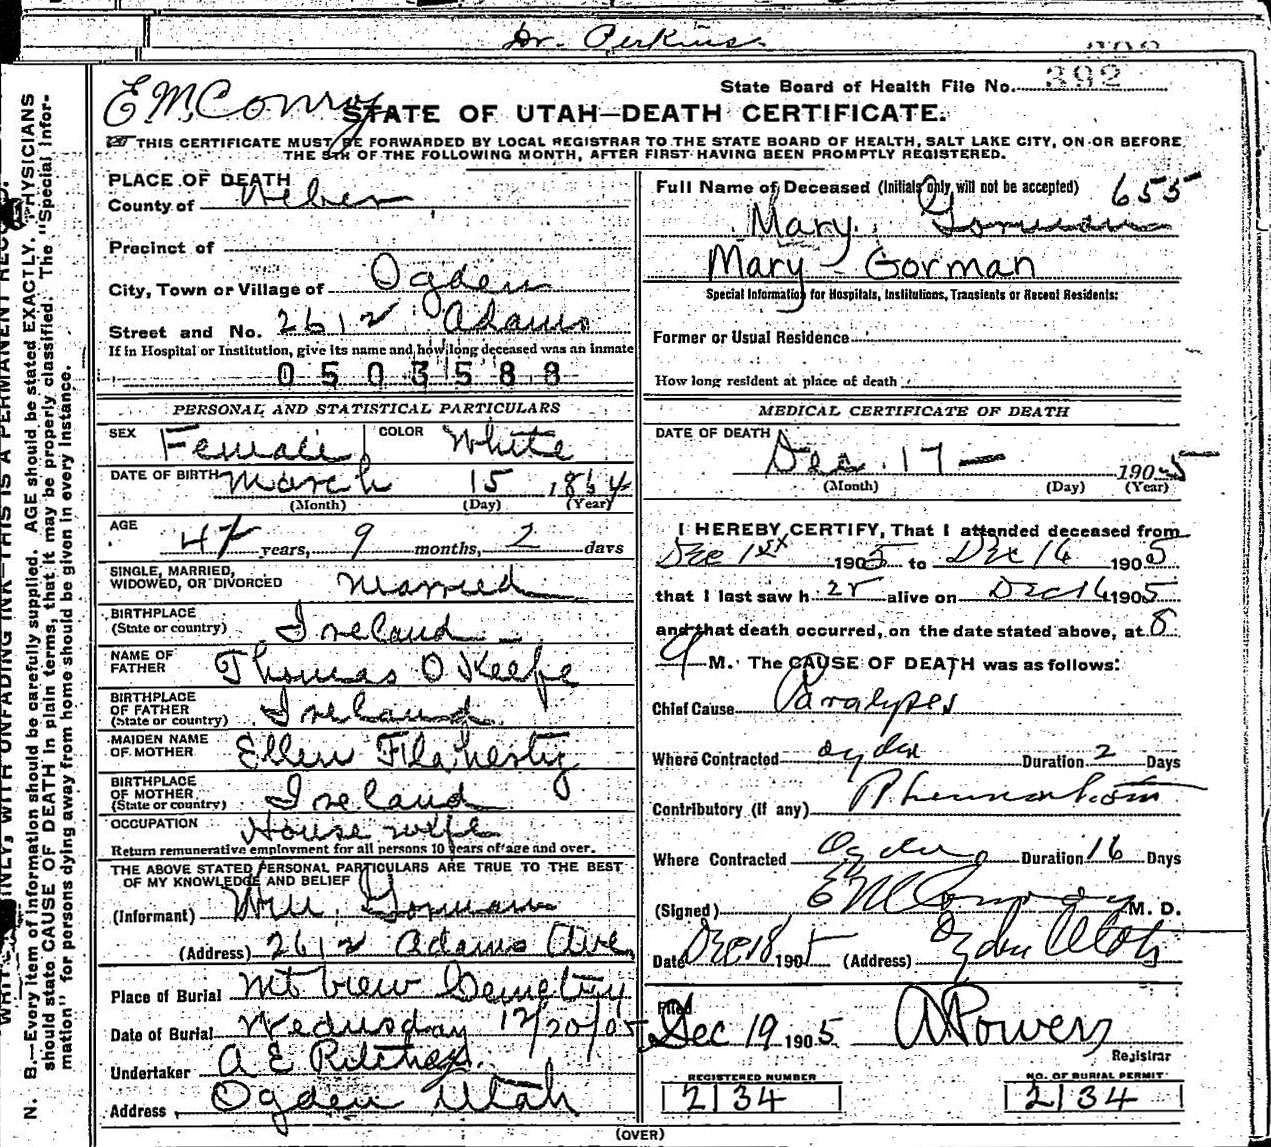 Dr. Perkins
392
State Board of Health File No. 392
E M Conroy
STATE OF UTAH—DEATH CERTIFICATE.
THIS CERTIFICATE MUST BE FORWARDED BY LOCAL REGISTRAR TO THE STATE BOARD OF HEALTH, SALT LAKE CITY, ON OR BEFORE
THE 5TH OF THE FOLLOWING MONTH, AFTER FIRST HAVING BEEN PROMPTLY REGISTERED.
PLACE OF DEATH
County of Weber
Precinct of
City, Town or Village of Ogden
Street and No. 2612 Adams
If in Hospital or Institution, give its name and how long deceased was an inmate
0503588
PERSONAL AND STATISTICAL PARTICULARS
SEX Female COLOR White
DATE OF BIRTH March 15
(Month) (Day) (Year)
AGE 47 years, 9 months, 2 days
SINGLE, MARRIED,
WIDOWED, OR DIVORCED Married
BIRTHPLACE
(State or country) Ireland
NAME OF
FATHER Thomas O Keefe
BIRTHPLACE
OF FATHER
(State or country) Ireland
MAIDEN NAME
OF MOTHER Ellen Flaherty
BIRTHPLACE
OF MOTHER
(State or country) Ireland
OCCUPATION House wife
Return remunerative employment for all persons 10 years of age and over.
THE ABOVE STATED PERSONAL PARTICULARS ARE TRUE TO THE BEST
OF MY KNOWLEDGE AND BELIEF
(Informant) Wm. Gorman
(Address) 2612 Adams Ave
Place of Burial Mt View Cemetery
Date of Burial Wednesday 12/20/05
Undertaker A E
Address Ogden Utah
Full Name of Deceased (Initials only will not be accepted) 655
Mary Gorman
Mary Gorman
Special Information for Hospitals, Institutions, Transients or Recent Residents:
Former or Usual Residence
How long resident at place of death
MEDICAL CERTIFICATE OF DEATH
DATE OF DEATH
Dec. 17 — 1905
(Month) (Day) (Year)
I HEREBY CERTIFY, That I attended deceased from
Dec 1st 1905 to Dec 16 1905
that I last saw h er alive on Dec 16 1905
and that death occurred, on the date stated above, at 8
M. The CAUSE OF DEATH was as follows:
Chief Cause Paralysis
Where Contracted Ogden Duration 2 Days
Contributory (if any) Rheumatism
Where Contracted Ogden Duration 16 Days
(Signed) E M Conroy M. D.
Date Dec 18 1905 (Address) Ogden Utah
Filed
Dec 19 1905 A Powers
Registrar
REGISTERED NUMBER NO. OF BURIAL PERMIT
2134 2134
(OVER)
N. B.—Every item of information should be carefully supplied. AGE should be stated EXACTLY. PHYSICIANS
should state CAUSE OF DEATH in plain terms, that it may be properly classified. The "Special Infor-
mation" for persons dying away from home should be given in every instance.
WITH UNFADING INK—THIS IS A PERMANENT